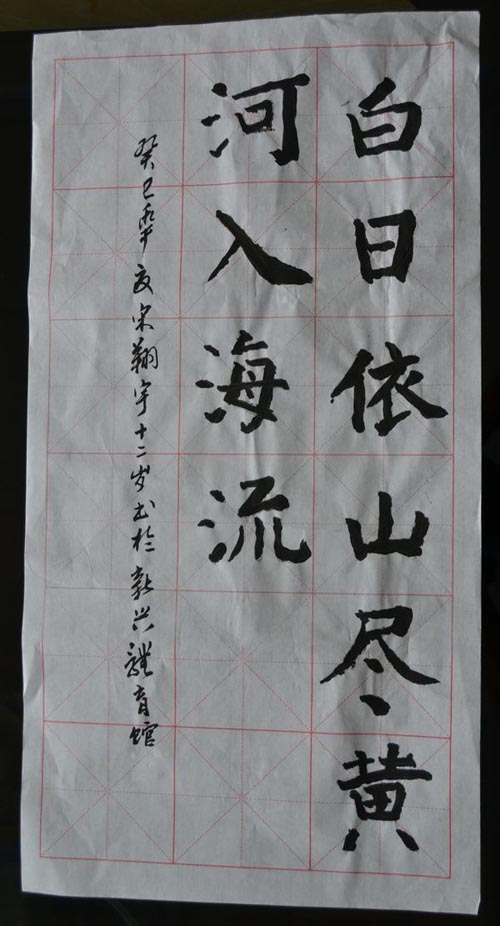 白日依山尽黄
河入海流
癸巳季夏宋翔宇十二岁书於新兴體育馆